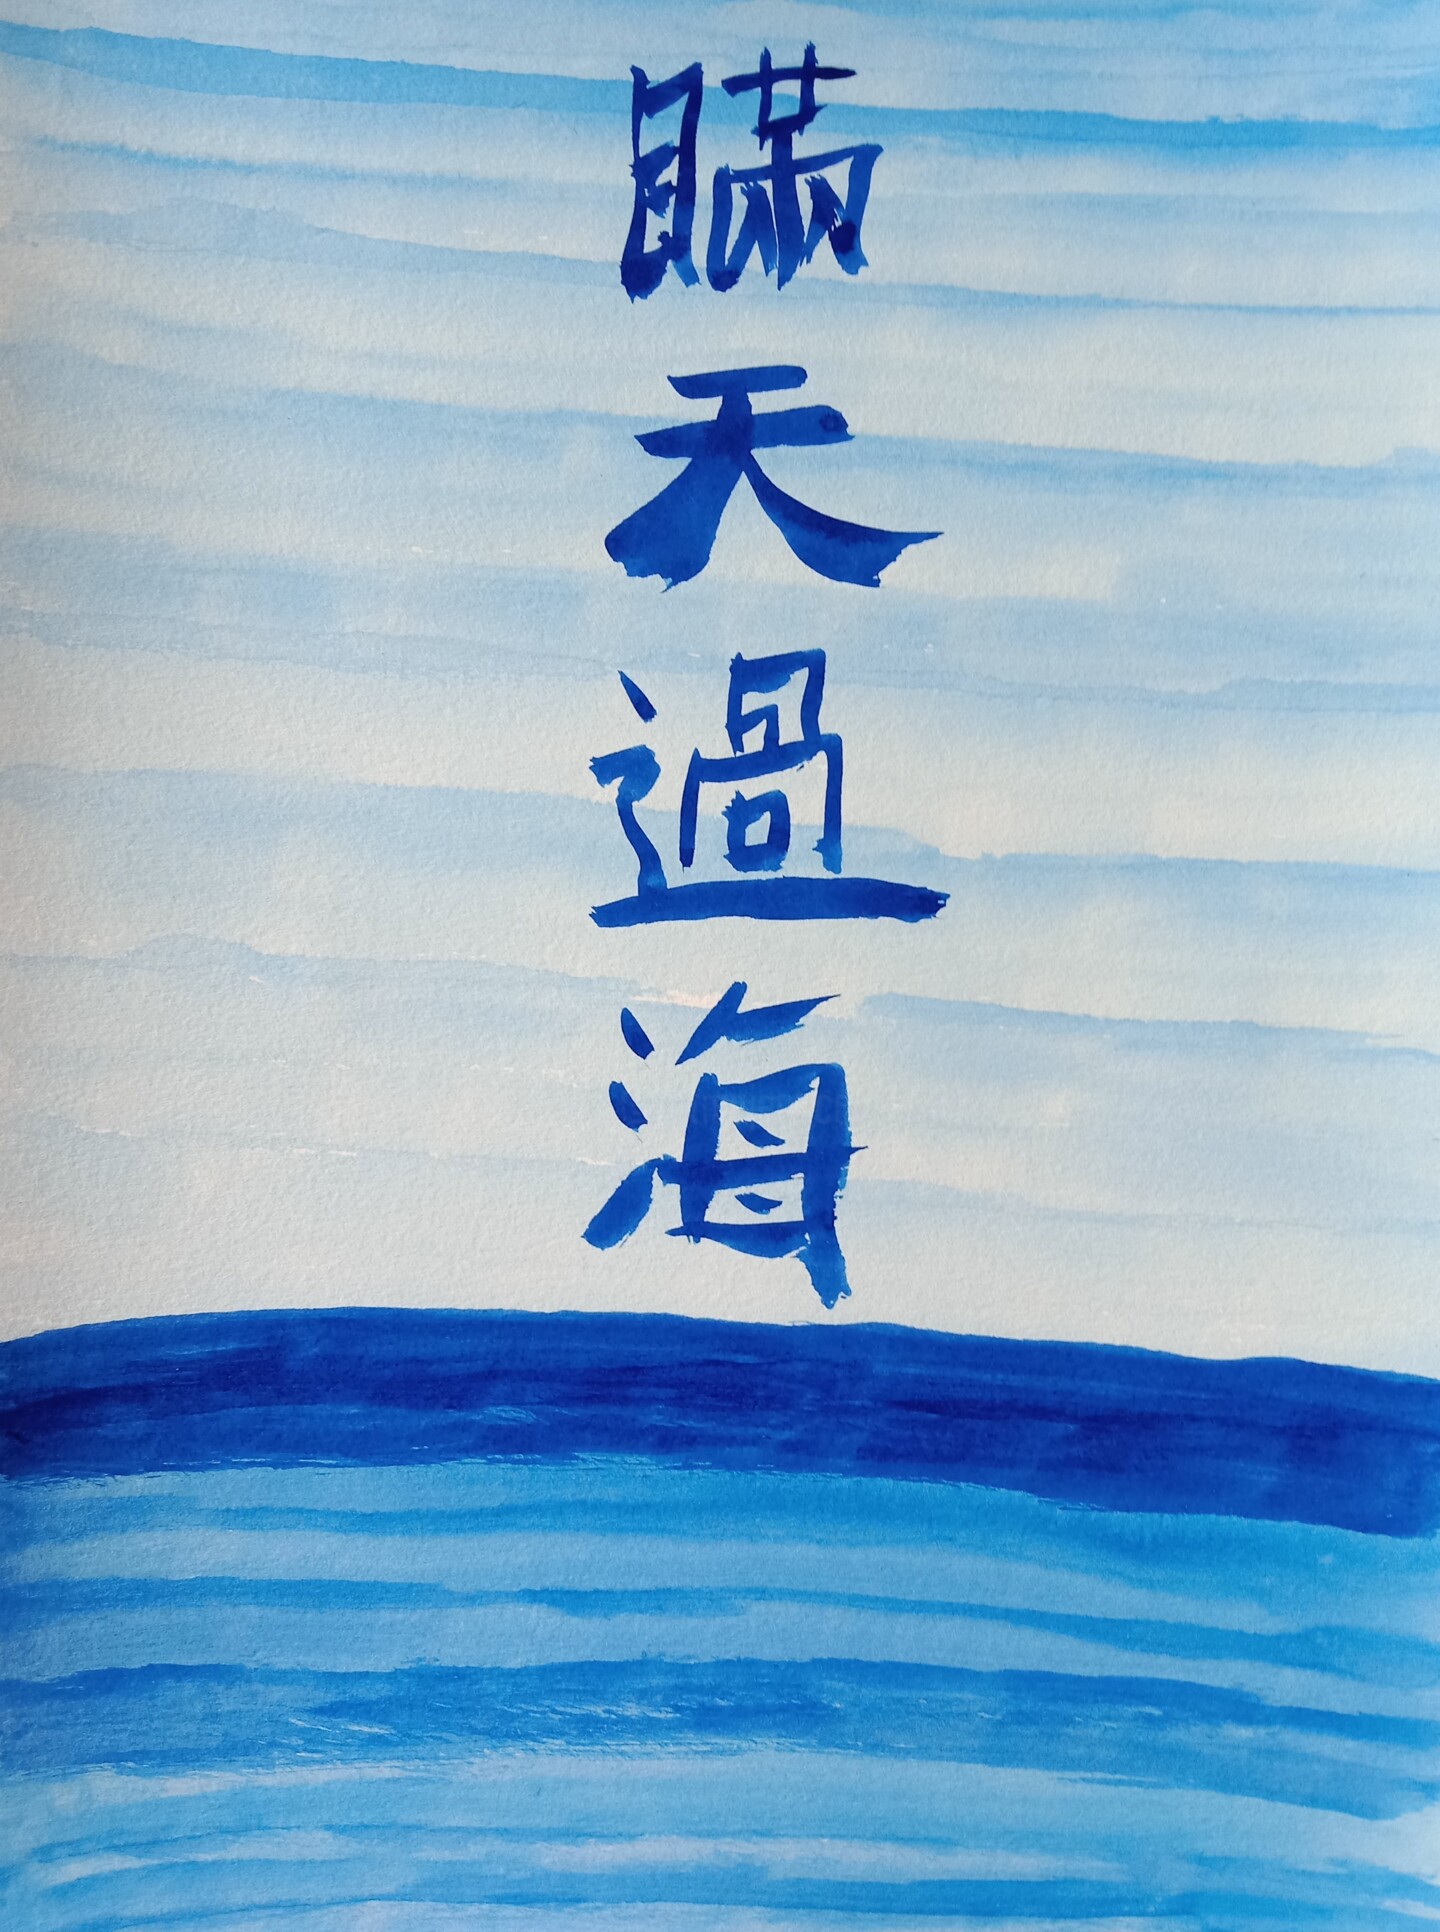 瞞天過海